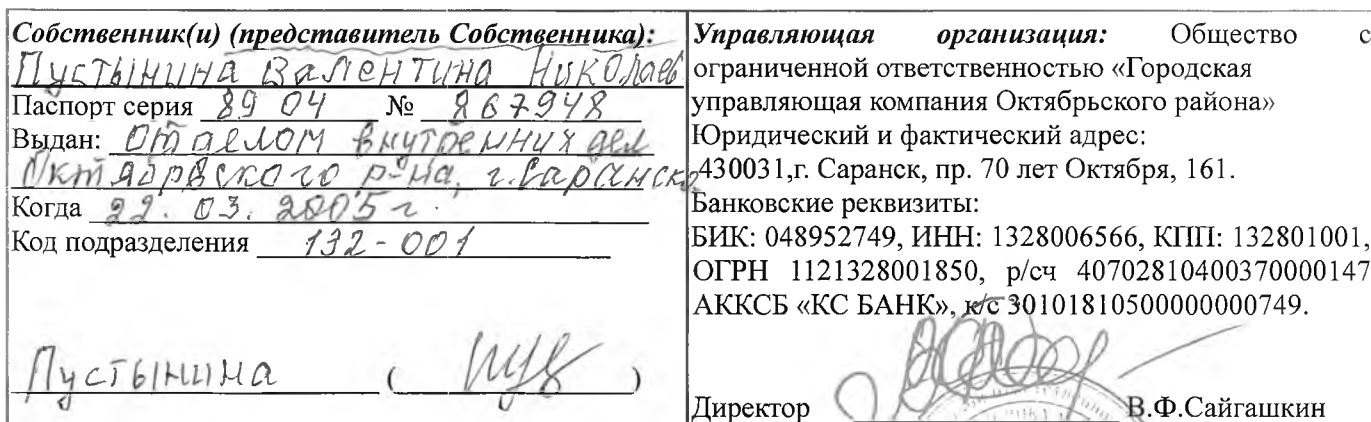 Собственник(и) (представитель Собственника):
Пустынина Валентина Николаев
Паспорт серия 89 04 № 267948
Выдан: Отделом внутренних дел
Октябрьского р-на, г. Саранска
Когда 22. 03. 2005 г.
Код подразделения 132-001
Пустынина ( )
Управляющая организация: Общество с
ограниченной ответственностью «Городская
управляющая компания Октябрьского района»
Юридический и фактический адрес:
430031,г. Саранск, пр. 70 лет Октября, 161.
Банковские реквизиты:
БИК: 048952749, ИНН: 1328006566, КПП: 132801001,
ОГРН 1121328001850, р/сч 40702810400370000147
АККСБ «КС БАНК», к/с 30101810500000000749.
Директор В.Ф.Сайгашкин